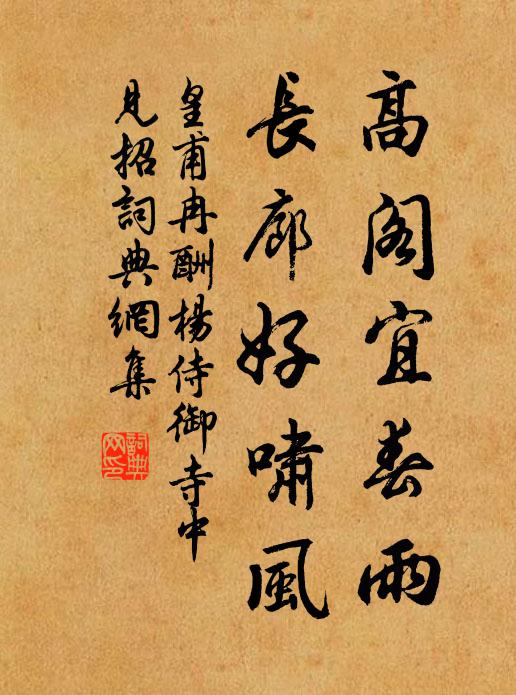 高閣宜春雨
長廊好嘯風
皇甫冉酬楊侍御寺中
見招詞典網集
詞典網印